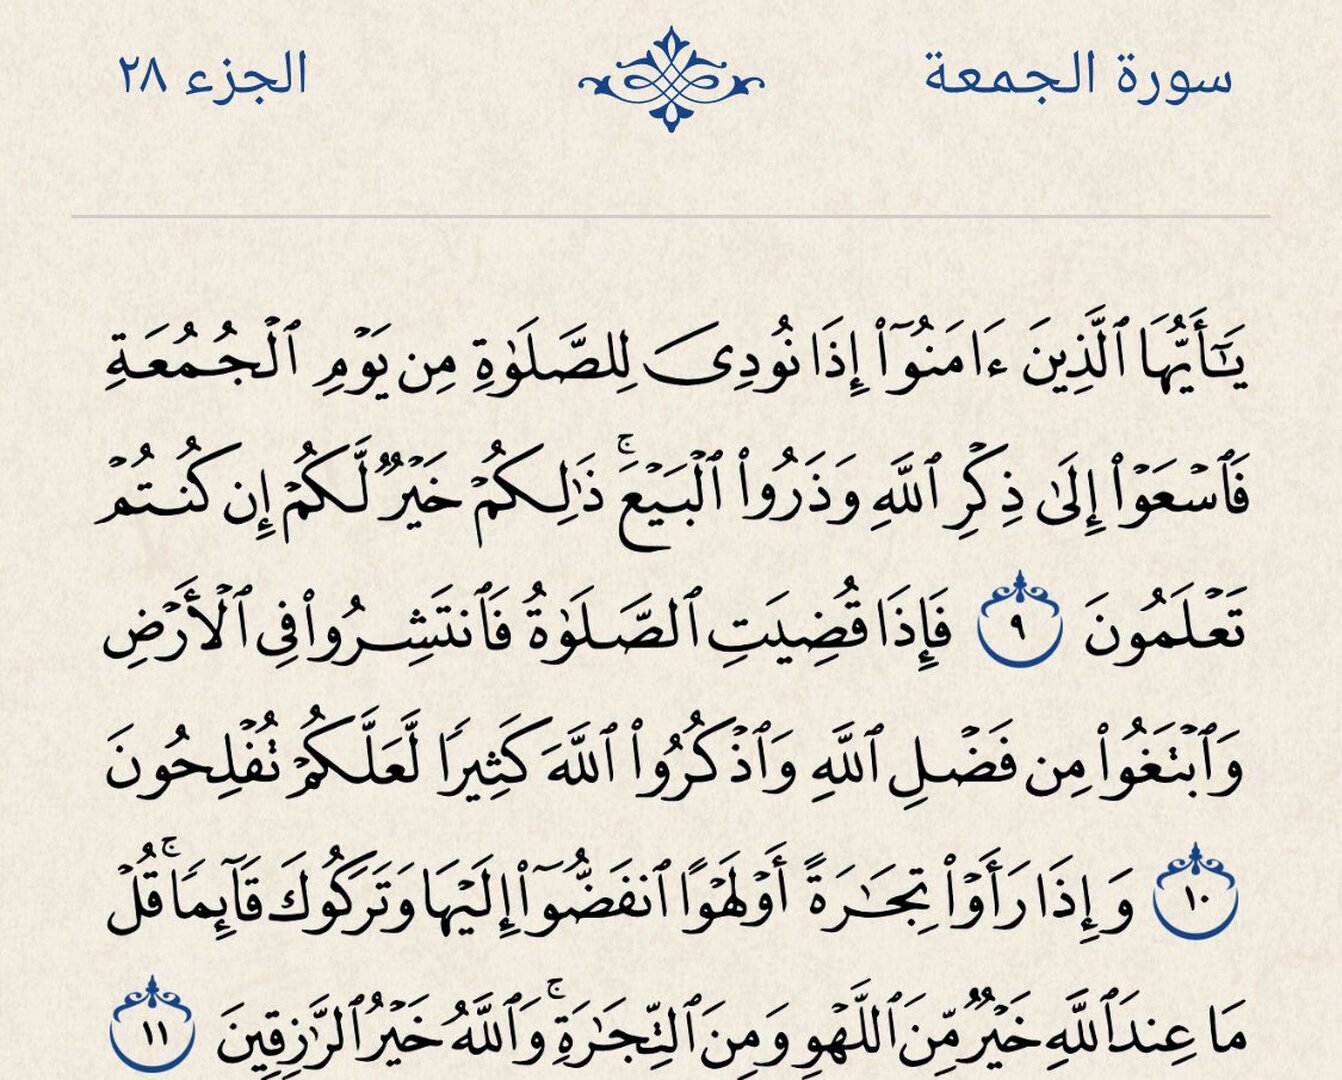 سورة الجمعة الجزء ٢٨
يَـٰٓأَيُّهَا ٱلَّذِينَ ءَامَنُوٓا۟ إِذَا نُودِىَ لِلصَّلَوٰةِ مِن يَوْمِ ٱلْجُمُعَةِ
فَٱسْعَوْا۟ إِلَىٰ ذِكْرِ ٱللَّهِ وَذَرُوا۟ ٱلْبَيْعَ ۚ ذَٰلِكُمْ خَيْرٌ لَّكُمْ إِن كُنتُمْ
تَعْلَمُونَ ٩ فَإِذَا قُضِيَتِ ٱلصَّلَوٰةُ فَٱنتَشِرُوا۟ فِى ٱلْأَرْضِ
وَٱبْتَغُوا۟ مِن فَضْلِ ٱللَّهِ وَٱذْكُرُوا۟ ٱللَّهَ كَثِيرًا لَّعَلَّكُمْ تُفْلِحُونَ
١٠ وَإِذَا رَأَوْا۟ تِجَـٰرَةً أَوْ لَهْوًا ٱنفَضُّوٓا۟ إِلَيْهَا وَتَرَكُوكَ قَآئِمًا ۚ قُلْ
مَا عِندَ ٱللَّهِ خَيْرٌ مِّنَ ٱللَّهْوِ وَمِنَ ٱلتِّجَـٰرَةِ ۚ وَٱللَّهُ خَيْرُ ٱلرَّٰزِقِينَ ١١